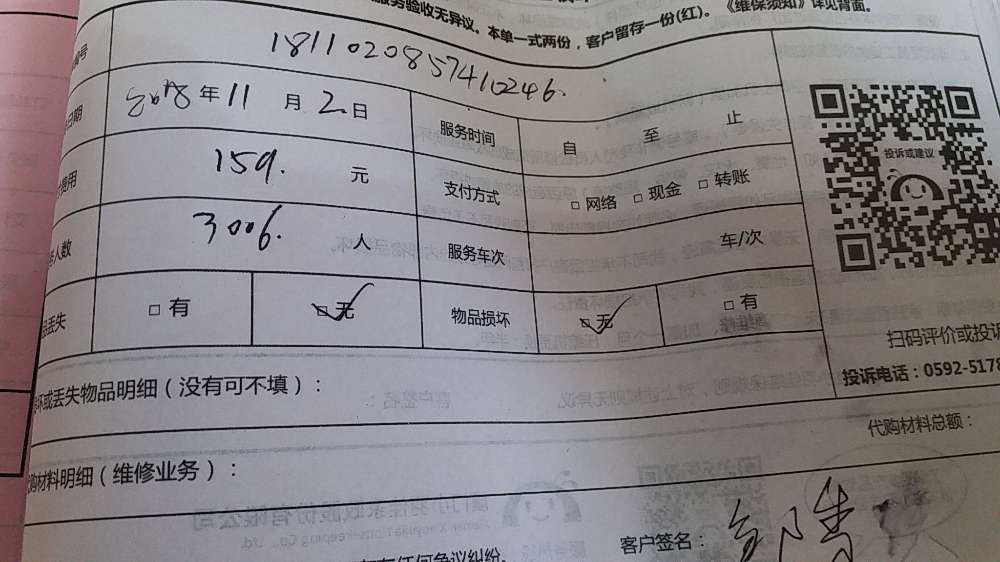 服务验收无异议。本单一式两份，客户留存一份(红)。《维保须知》详见背面。
号 1811020857410246.
日期 2018年11月2日 服务时间 自 至 止
费用 159. 元 支付方式 □ 网络 □ 现金 □ 转账
人数 3006. 人 服务车次 车/次
丢失 □ 有 □ 无 物品损坏 □ 无 □ 有
投诉或建议
扫码评价或投诉
投诉电话：0592-5178
坏或丢失物品明细（没有可不填）：
代购材料总额：
代购材料明细（维修业务）：
客户签名：
有任何争议纠纷.